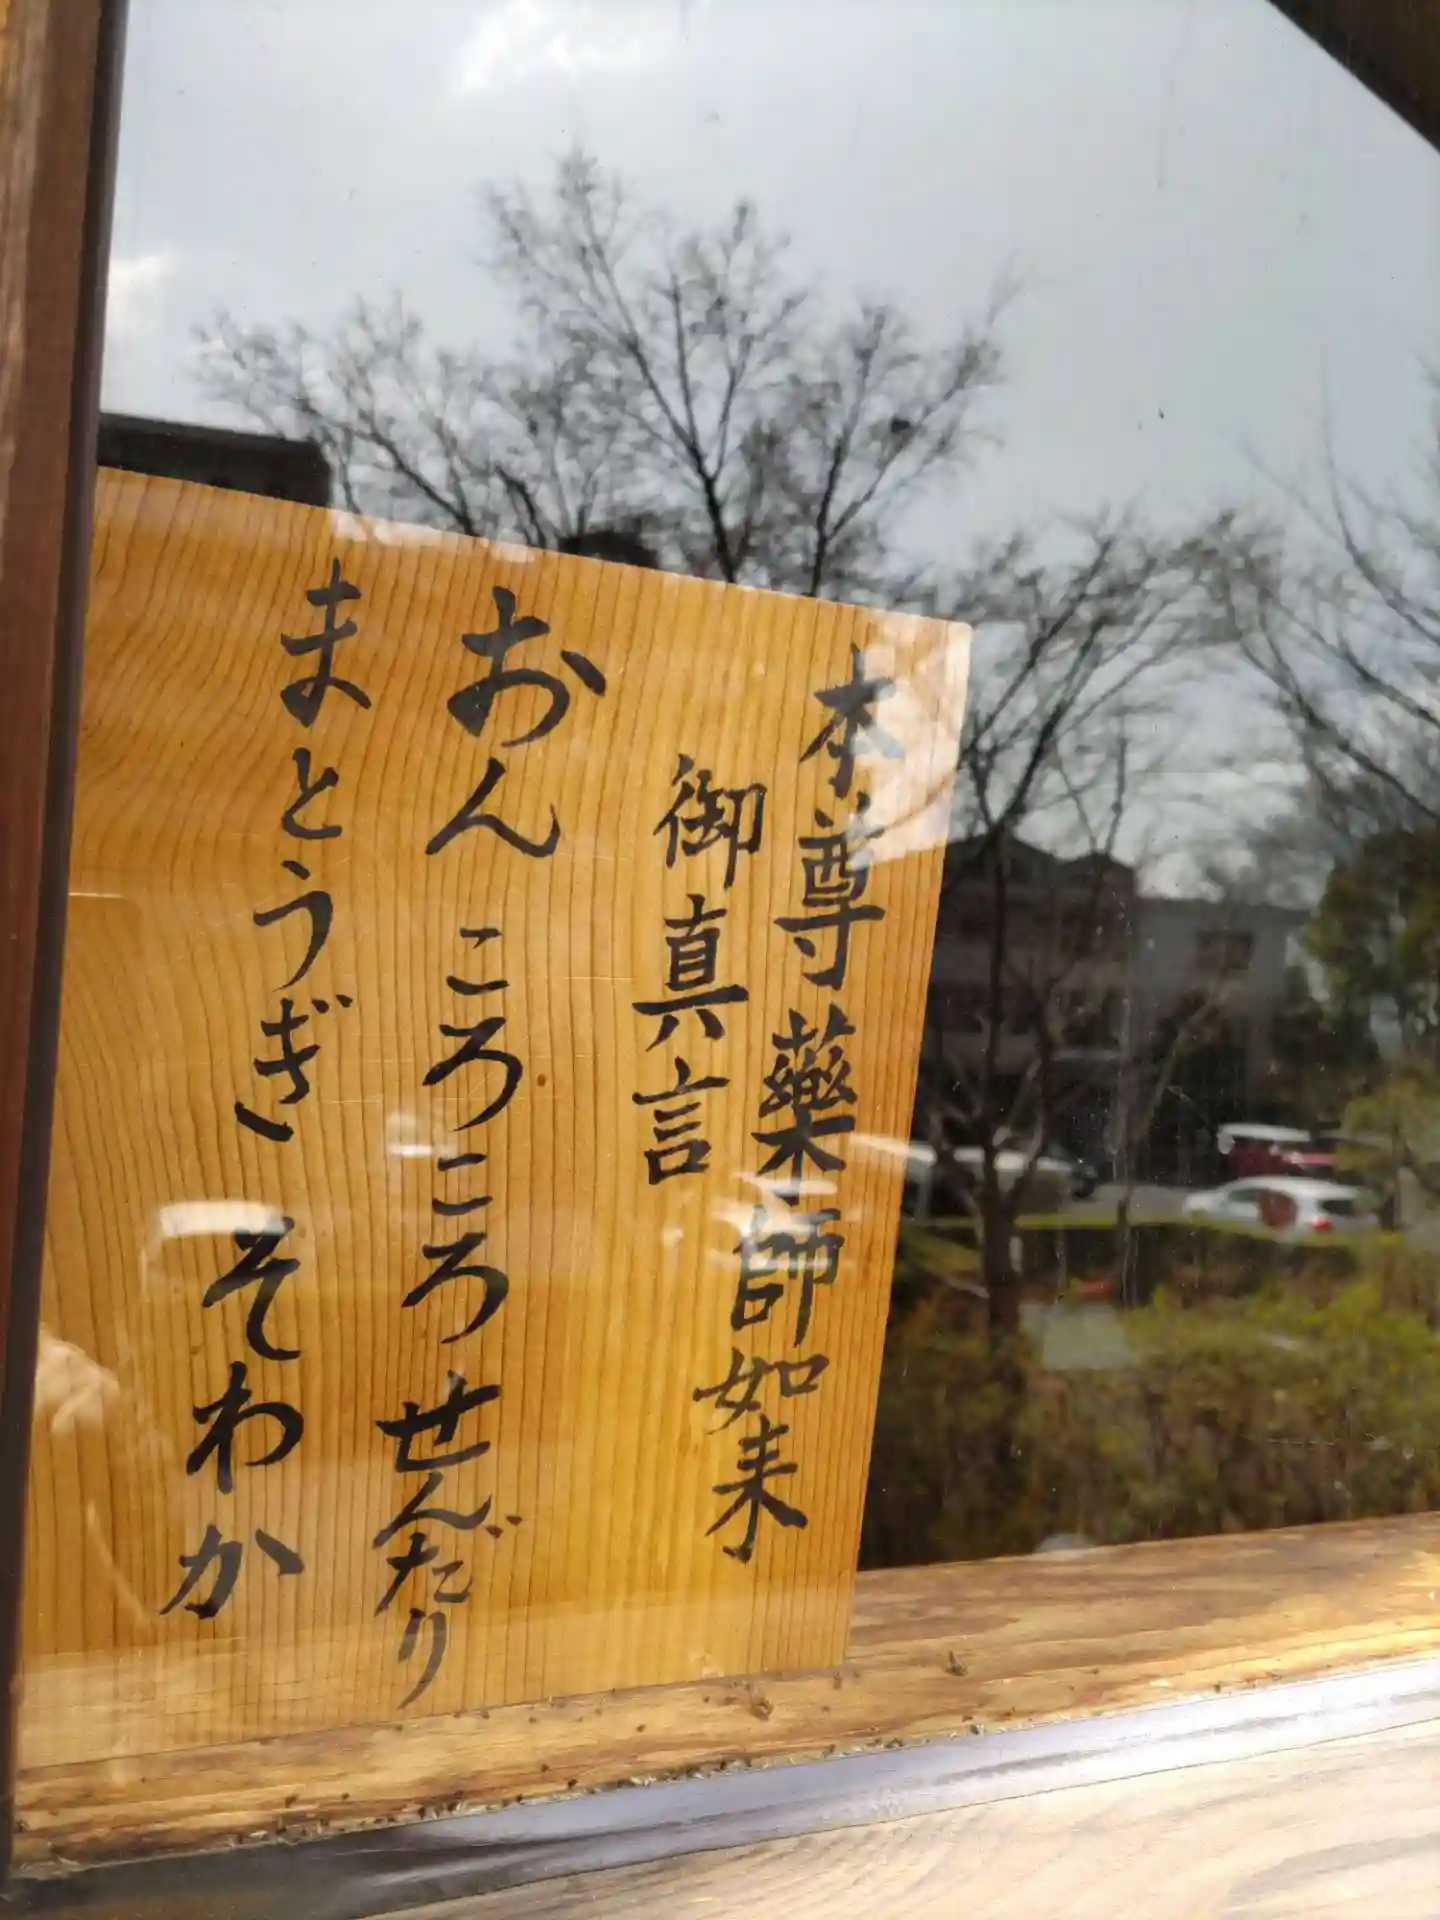 本尊薬師如来
御真言
おん ころころ せんだり
まとうぎ そわか